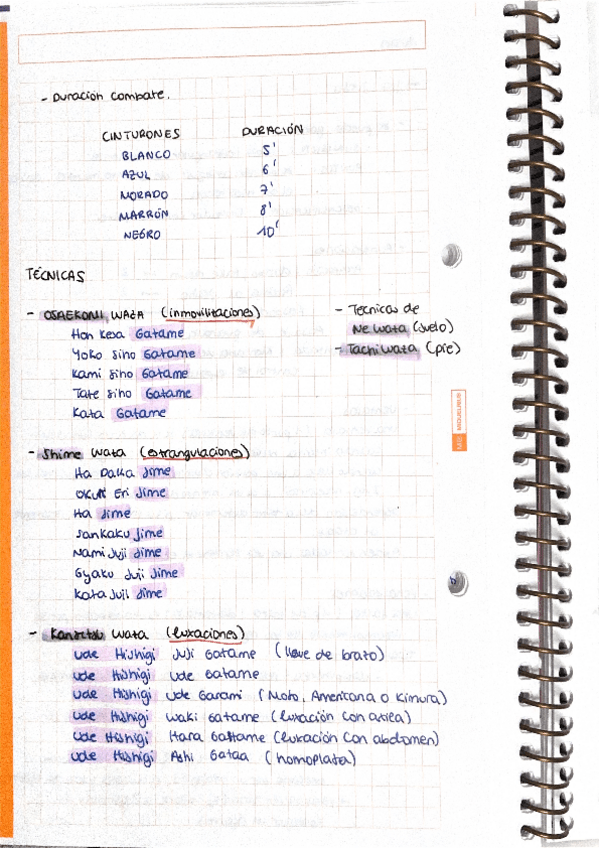 - Duración combate.
CINTURONES DURACIÓN
BLANCO 5'
AZUL 6'
MORADO 7'
MARRÓN 8'
NEGRO 10'
TÉCNICAS
- OSAEKOMI WAZA (inmovilizaciones)
Hon Kesa Gatame
Yoko Siho Gatame
Kami Siho Gatame
Tate Siho Gatame
Kata Gatame
- Técnicas de
Ne Waza (suelo)
- Tachi Waza (pie)
- Shime Waza (estrangulaciones)
Ha Daka Jime
OKURI Eri Jime
Ha Jime
Sankaku Jime
Nami Juji Jime
Gyaku Juji Jime
Kata Juji Jime
- Kansetsu Waza (luxaciones)
Ude Hishigi Juji Gatame (llave de brazo)
Ude Hishigi Ude Gatame
Ude Hishigi Ude Garami (Moto, Americana o Kimura)
Ude Hishigi Waki Gatame (luxación con axila)
Ude Hishigi Hara Gattame (luxación con abdomen)
Ude Hishigi Ashi Gataa (homoplata)
MIQUELRIUS